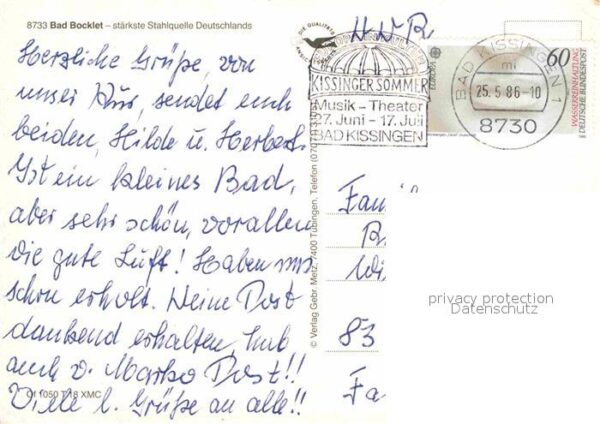 8733 Bad Bocklet – stärkste Stahlquelle Deutschlands
Herzliche Grüße, von
unser Kur, sendet euch
beiden, Hilde u. Herbert.
Ist ein kleines Bad,
aber sehr schön, vorallen
die gute Luft! Haben uns
schon erholt. Deine Post
dankend erhalten, hab
auch v. Marko Post!!
Viele l. Grüße an alle!!
CI 1050 T 18 XMC
© Verlag Gebr. Metz, 7400 Tübingen, Telefon
DIE QUALITÄTS
KISSINGER SOMMER
Musik – Theater
27. Juni – 17. Juli
BAD KISSINGEN
EUROPA
60
WASSERREINHALTUNG
DEUTSCHE BUNDESPOST
BAD KISSINGEN 1
mi
25.5.86-10
8730
Fam
R
Wi
83
Fa
privacy protection
Datenschutz